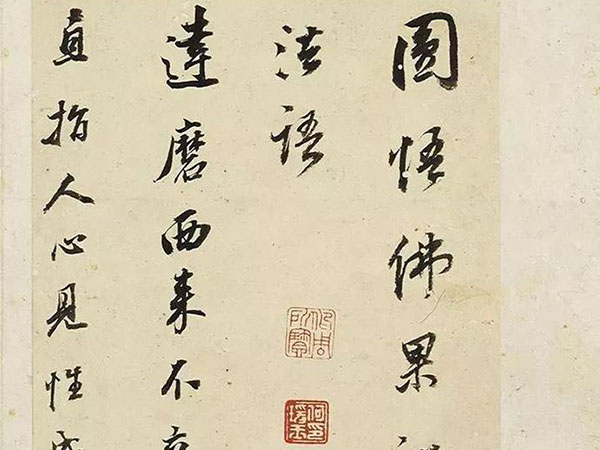 圓悟佛果禪
法語
達磨西来不立
直指人心見性成